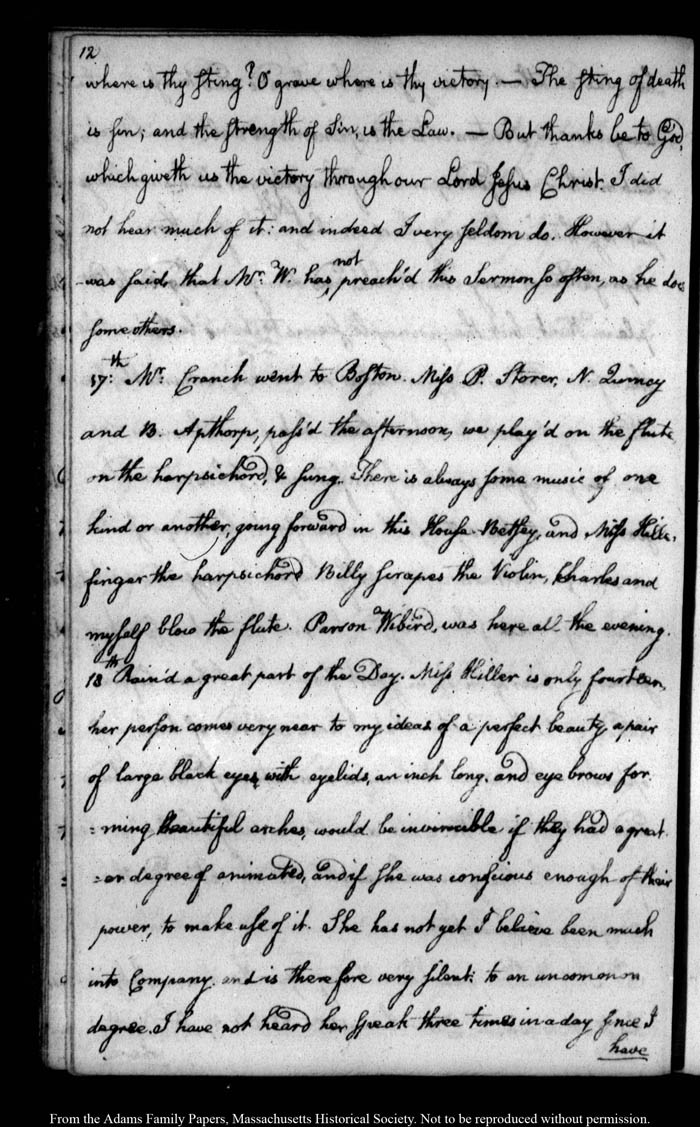 12
where is thy sting? O grave where is thy victory. — The sting of death
is sin; and the strength of Sin, is the Law. — But thanks be to God,
which giveth us the victory through our Lord Jesus Christ. I did
not hear much of it: and indeed I very seldom do. However it
was said, that Mr. W. has not preach'd this Sermon so often, as he does
some others.
17th: Mr. Cranch went to Boston. Miss P. Storer, N. Quincy
and B. Apthorp, pass'd the afternoon, we play'd on the flute
on the harpsichord, & sung. There is always some music of one
kind or another, going forward in this House. Betsey, and Miss Hiller,
finger the harpsichord Billy scrapes the Violin, Charles and
myself blow the flute. Parson Wibird, was here all the evening.
18th Rain'd a great part of the Day. Miss Hiller is only fourteen,
her person comes very near to my ideas of a perfect beauty, a pair
of large black eyes, with eyelids, an inch long, and eye brows for
=ming beautiful arches, would be invincible if they had a great
=er degree of animated, and if she was conscious enough of their
power, to make use of it. She has not yet I believe been much
into Company. and is therefore very silent: to an uncommon
degree. I have not heard her speak three times in a day since I
have
From the Adams Family Papers, Massachusetts Historical Society. Not to be reproduced without permission.